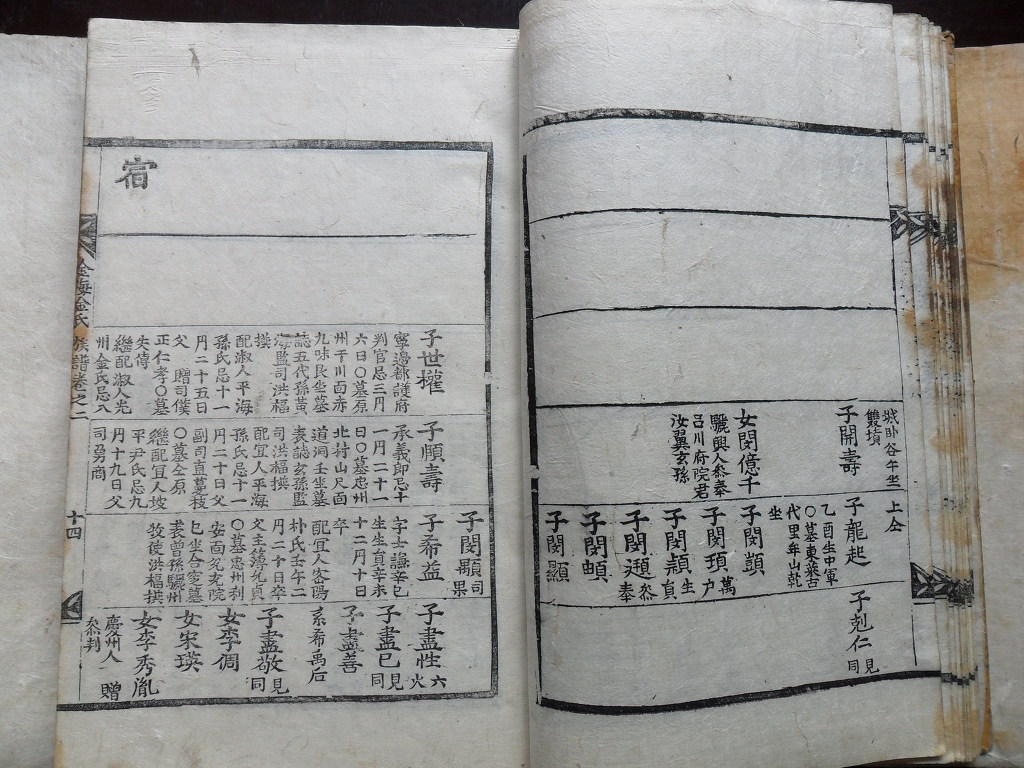 城卧谷午坐
雙墳
子開壽
女閔億千
驪興人叅奉
呂川府院君
汝翼玄孫
上仝
子龍起
乙酉生中軍
〇墓東萊古
代里年山乾
坐
子閔顗
子閔頊
萬戶
子閔穎
生員
子閔
叅奉
子閔頔
子閔顯
子剋仁
見同
宿
子世權
寧邊都護府
判官忌三月
六日〇墓原
州干川面赤
九味艮坐墓
誌五代孫黃
海監司洪楅
撰
配淑人平海
孫氏忌十一
月二十五日
父 贈司僕
正仁孝〇墓
失傳
繼配淑人光
州金氏忌八
子順壽
承義郎忌十
一月二十一
日〇墓忠州
北村山尺面
道洞壬坐墓
表誌玄孫監
司洪楅撰
配宜人平海
孫氏忌十一
月二十日父
副司直蔓枝
〇墓仝原
繼配宜人坡
平尹氏忌九
月十九日父
司勇商
子閔顯
司果
子希益
字士謙辛巳
生生員辛未
十二月十日
卒
配宜人密陽
朴氏壬午二
月二十日卒
父主簿允貞
〇墓忠州利
安面見老院
巳坐合窆墓
表曾孫驪州
牧使洪楅撰
子盡性
六火
子盡己
見同
子盡善
系希禹后
子盡敬
見同
女李倜
女宋瑛
女李秀胤
慶州人 贈
叅判
金海金氏族譜卷之二
十四